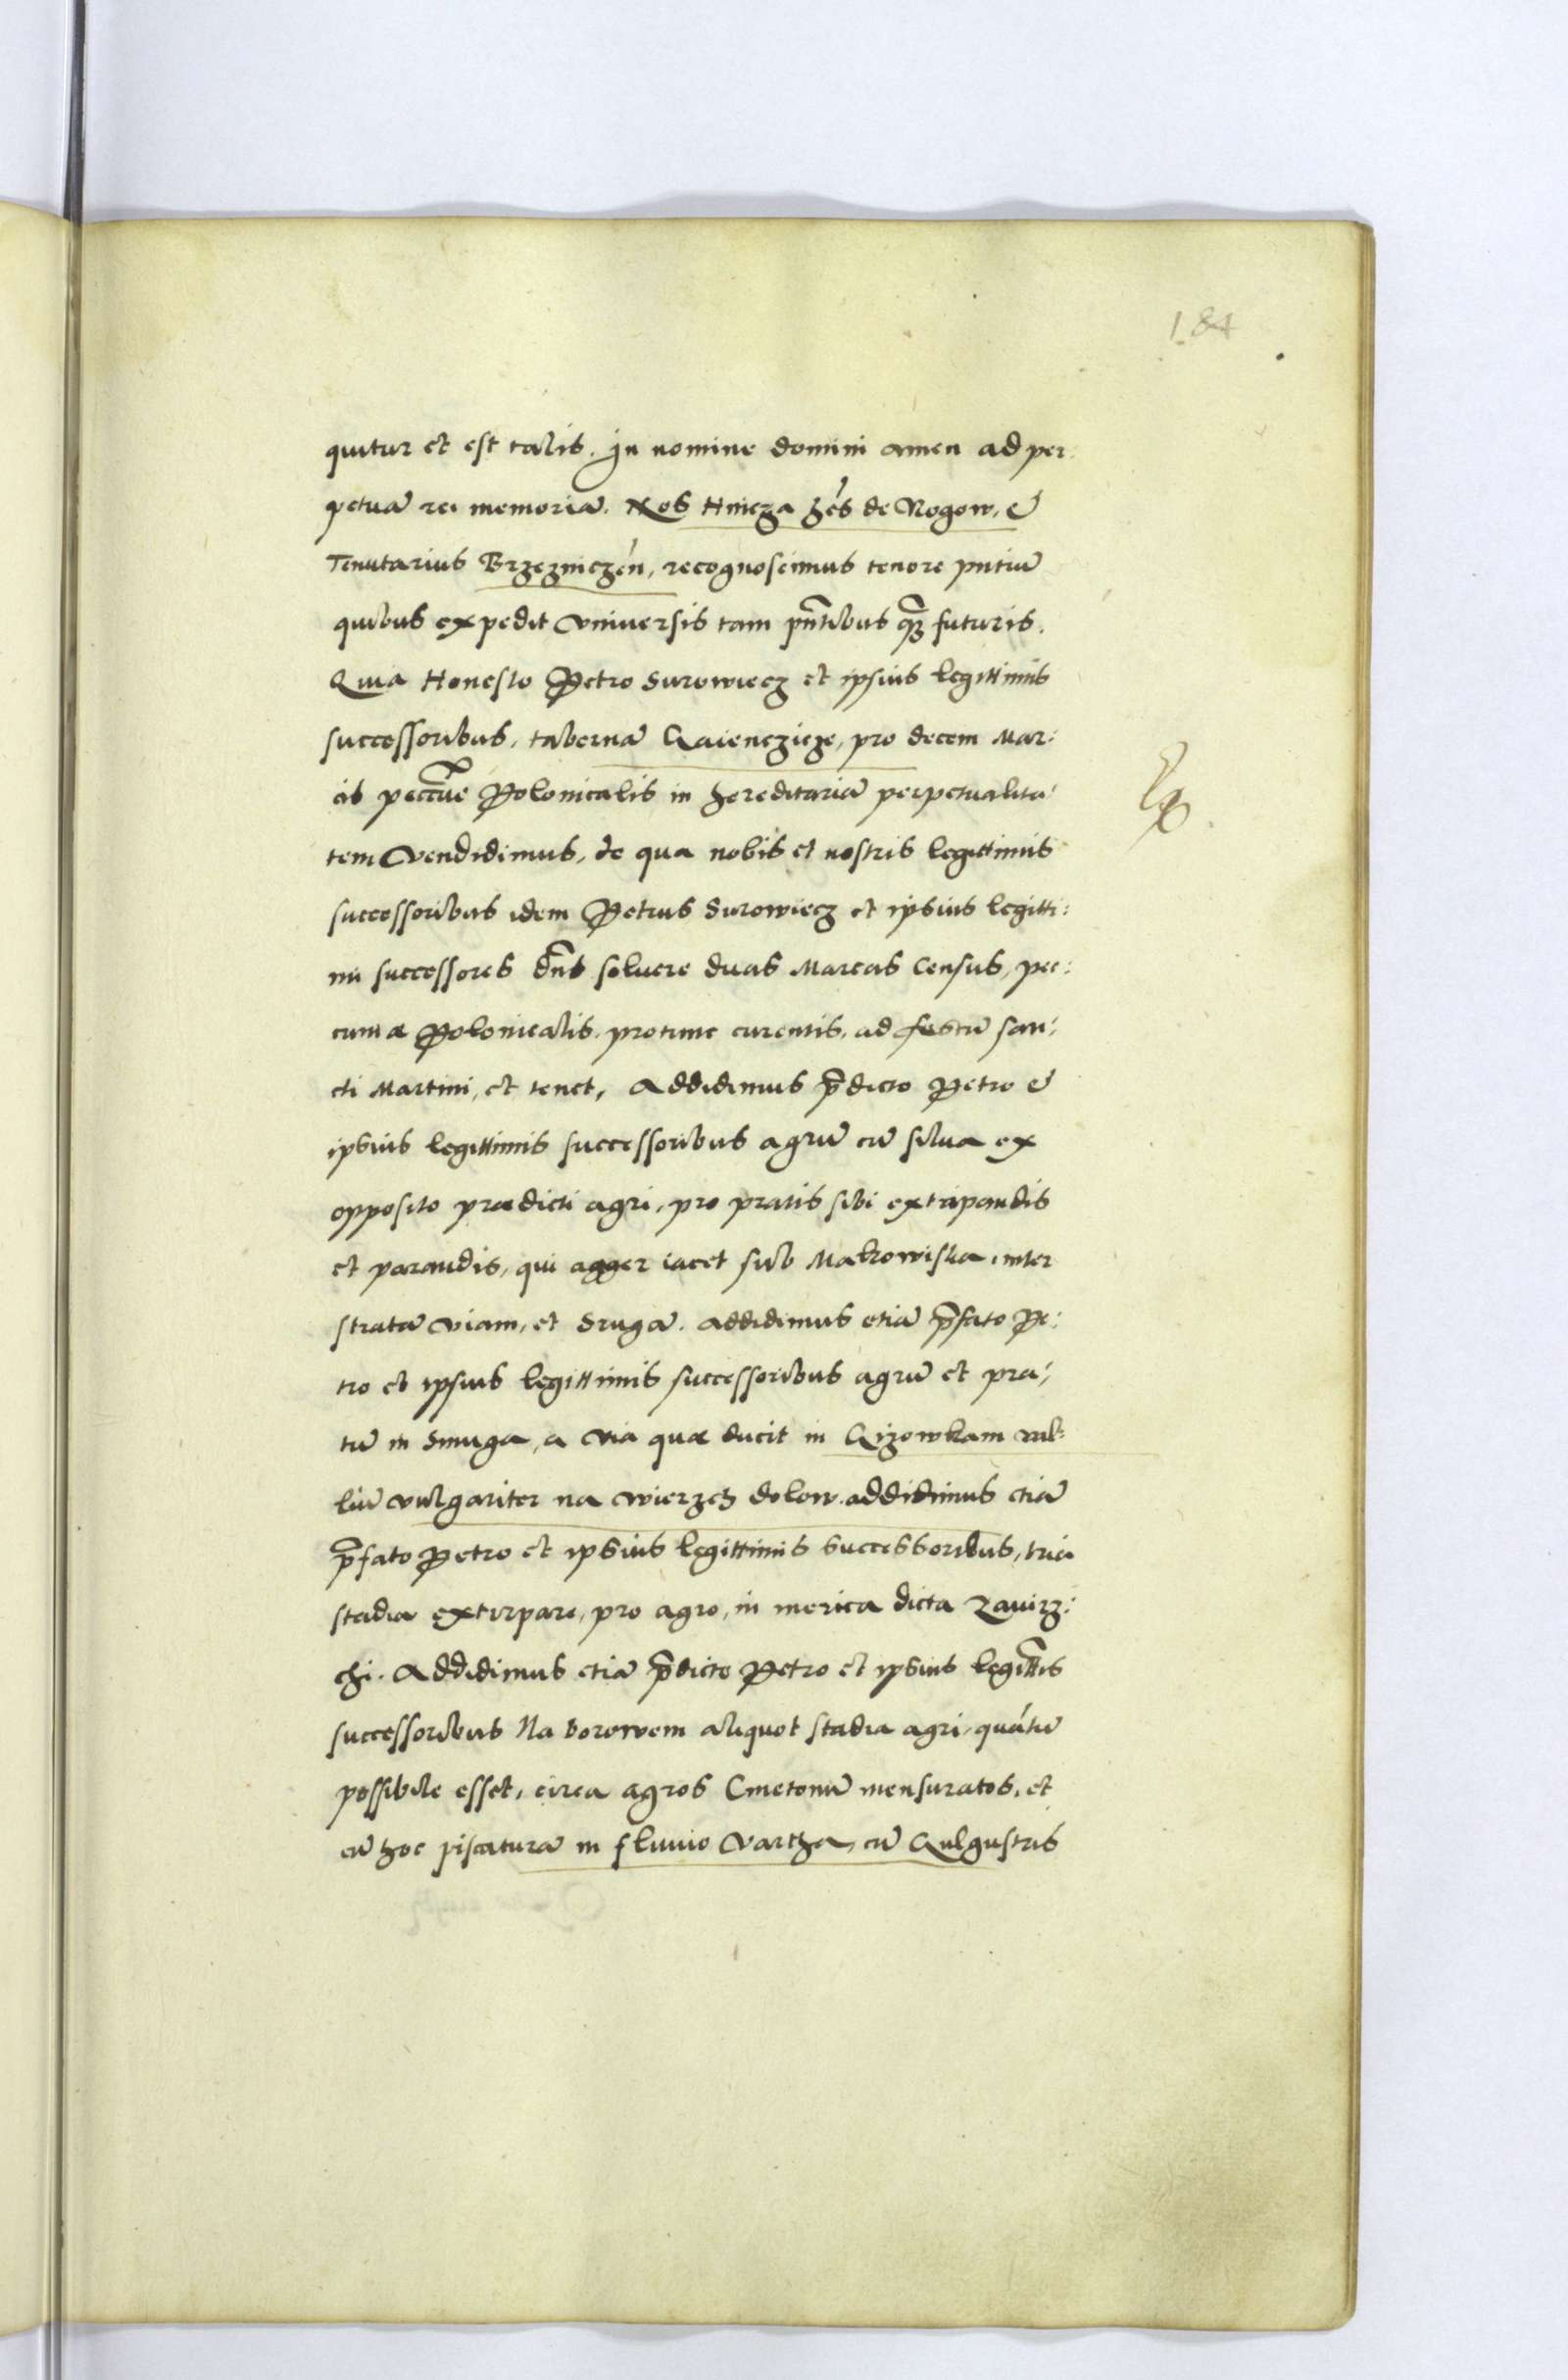 184
quitur et est talis. In nomine domini amen ad per:
petuā rei memoriā. Nos Hincza hẽs de Rogow, &
Tenutarius Brzezniczeń, recognoscimus tenore pñtiū
quibus expedit Vniversis tam pñtibus q̃ȝ futuris.
Quia Honesto Petro Surowiecz et ipsius legittimis
successoribus, tabernā Kaienczicze, pro decem Mar:
cis peccũe Polonicalis in hereditariā perpetualita:
tem Vendidimus, de qua nobis et nostris legittimis
successoribus idem Petrus Surowiecz et ipsius legitti:
mi successores dñt soluere duas Marcas Census, pec:
cuniæ Polonicalis protunc curentis, ad festū san:
cti Martini, et tenet, Addidimus p̄dicto Petro &
ipsius legittimis successoribus agrū cū silua ex
opposito prædicti agri, pro pratis sibi extirpandis
et parandis, qui agger iacet sub Makowiska, inter
stratā viam, et Srugā. addidimus etiā p̄fato Pe:
tro et ipsius legittimis successoribus agrū et pra:
tū in Smuga, a via quæ ducit in Kizowkam vil:
liū vulgariter na wierzch dolow. addidimus etiā
p̄fato Petro et ipsius legittimis successoribus, tria
stadia extirpare, pro agro, in merica dicta Zauirz:
chi. Addidimus etiā p̄dicto Petro et ipsius legitt̃is
successoribus Na borowem aliquot stadia agri, quātū
possibile esset, circa agros Cmetonū mensuratos, et
cū hoc piscaturā in fluuio Vartha, cū Gulgustris